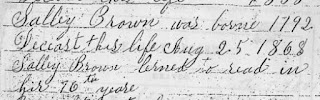 Salley Brown was borne 1792
Diciast this life Aug 25 1868
Salley Brown lerned to read in
hir 76th yeare